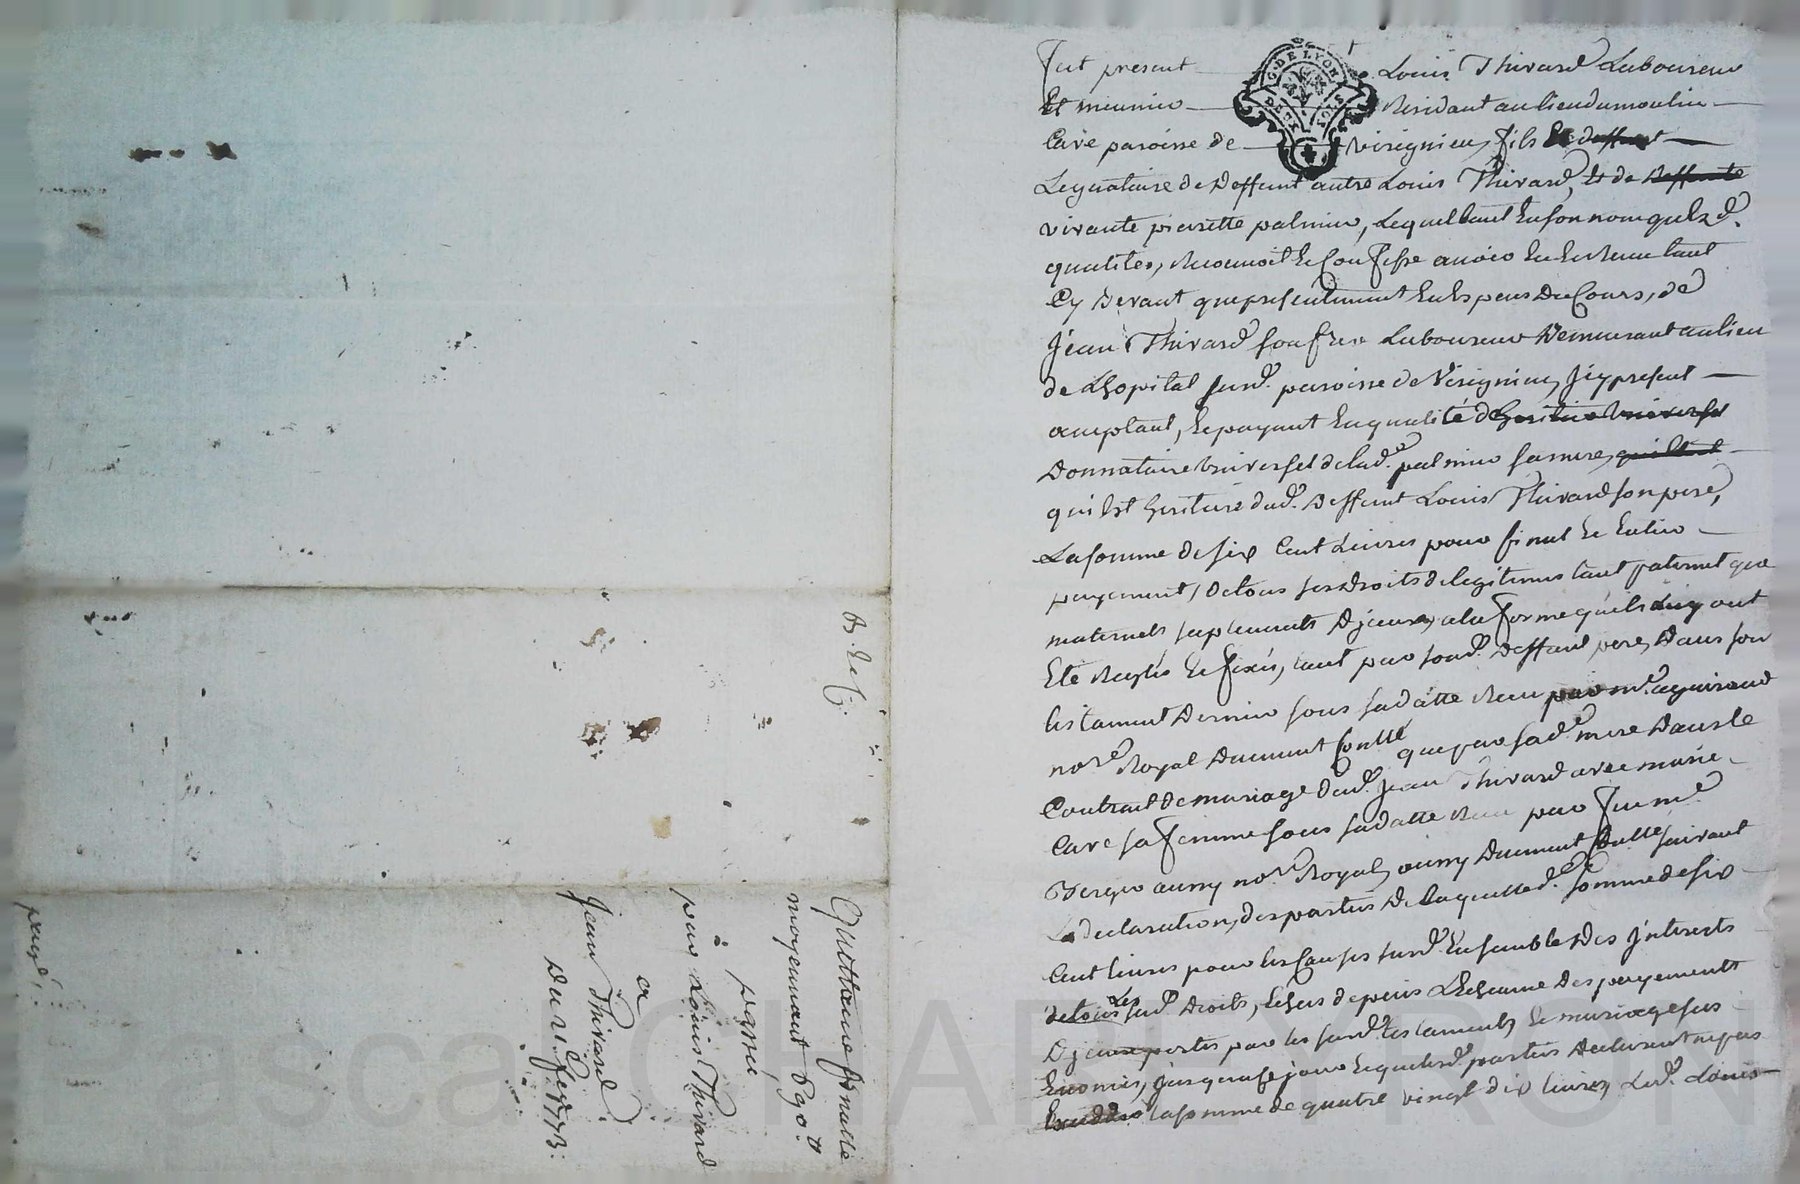 Quittance finalle
moyennant 690 tt
passée
par Louis Thivard
a
Jean Thivard
Du 1er fev 1773
payé
G. DE LYON
Fut present Louis Thivard Laboureur
Et meunier Residant au lieu du moulin
Cave paroisse de Virignieu, fils Et deffunt
Legataire de Deffunt autre Louis Thivard, Et de Deffunte
vivante pierrette palmier, Lequel tant En son nom quelz d.
qualités, Reconnoit Et Confesse avoir Eu Et Receu tant
Cy devant que presentement En Espece Du Cours, de
Jean Thivard son frere Laboureur Demeurant au lieu
de Lhopital susd. paroisse de Virignieu, Icy present
acceptant, Et payant En qualité d'heritier Universel
Donnataire Universel de lad.e palmier sa mere,
qu'il Est heritier dud. Deffunt Louis Thivard son pere,
La somme de six Cent Livres pour final Et Entier
payement, de tous ses droits de legitimes tant paternel que
maternels suplements D jceux, a la forme qu'ils Luy ont
Eté Reglés Et fixés, tant par sond. Deffunt pere, Dans son
testament Dernier sous sa datte Receu par m.e
no.re Royal Duement Conllé que par sad.e mere Dans le
Contract de mariage dud. Jean Thivard avec marie
Cave sa femme sous sa datte Receu par feu m.e
aussy no.re Royal, aussy Duement Conllé suivant
La declaration, des parties De Laquelle d.e somme de six
Cent livres pour les Causes susd. Ensemble Des jnterests
de tous Les sud. Droits, Echus depuis L'Echeance Des payements
D jceux portés par les susd. testaments, Et mariage sus
Enoncés, jusqu'a ce jour Lesquels d. parties Declarent n'pas
Exceder la somme de quatre vingt dix livres, Led. Louis